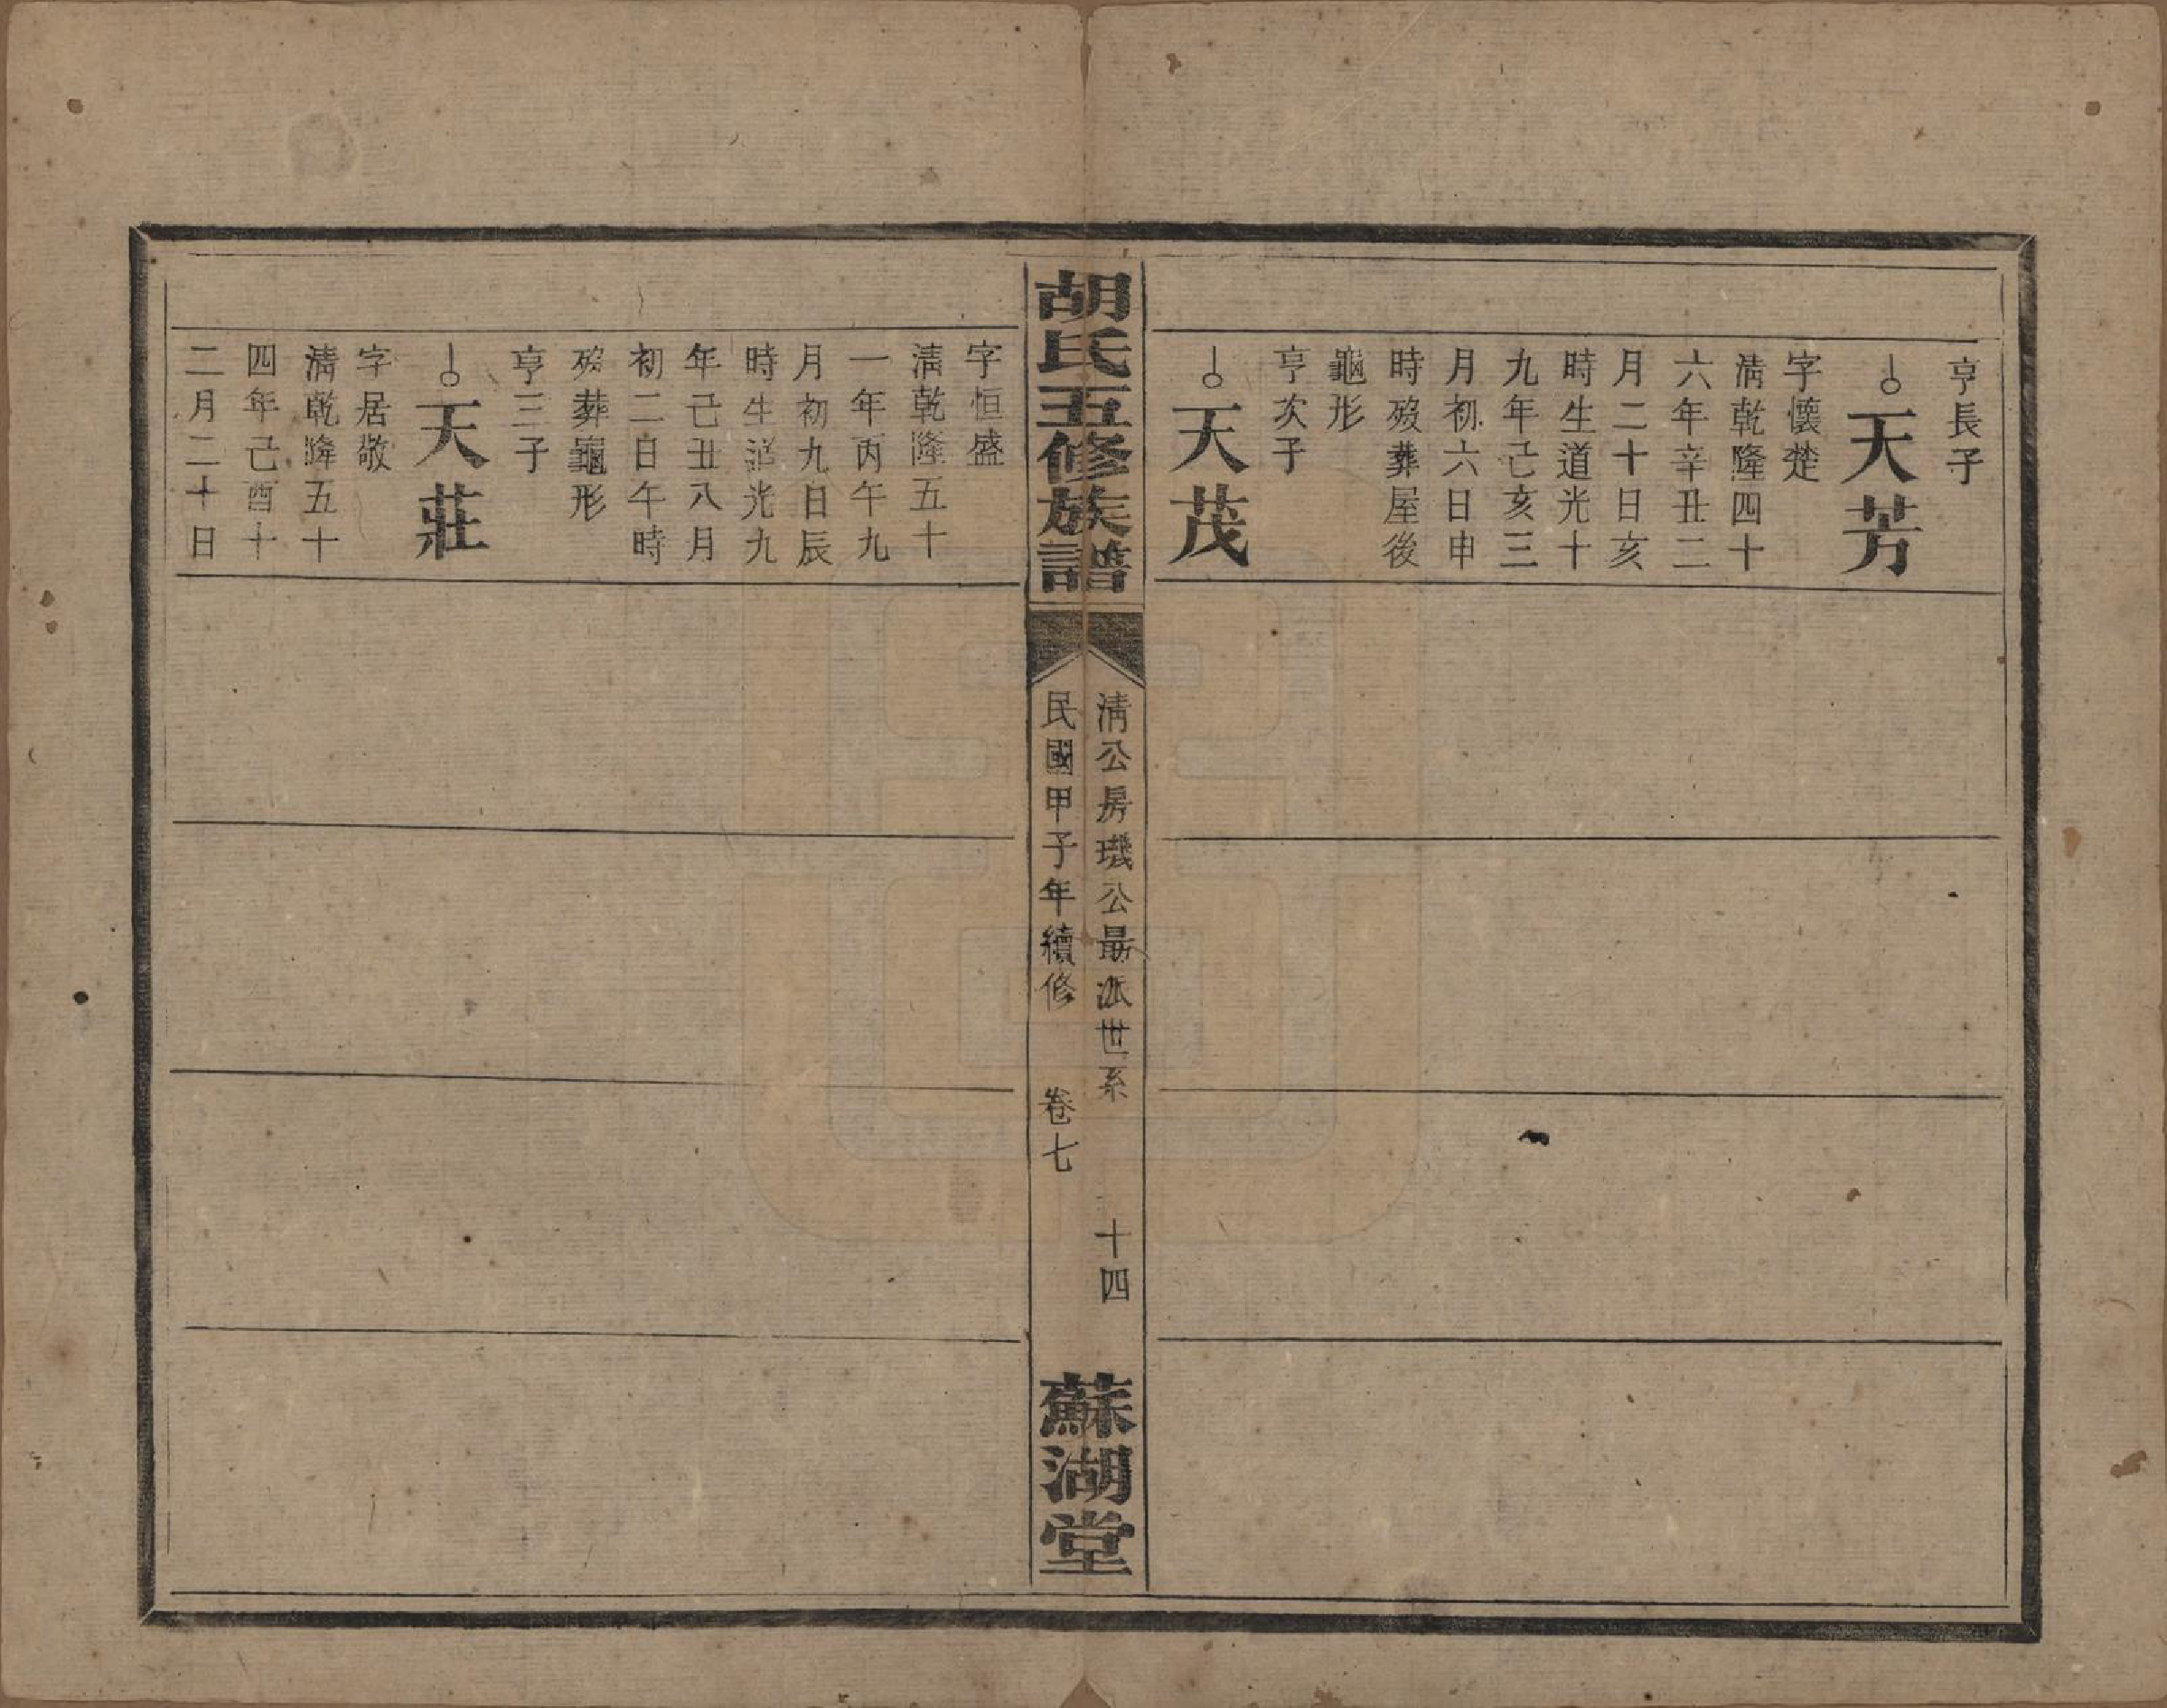 亨長子
天芳
字懷楚
淸乾隆四十
六年辛丑二
月二十日亥
時生道光十
九年己亥三
月初六日申
時歿葬屋後
龜形
亨次子
天茂
胡氏五修族譜
淸公房璣公最派世系
十四
民國甲子年續修
卷七
蘇湖堂
字恒盛
淸乾隆五十
一年丙午九
月初九日辰
時生道光九
年己丑八月
初二日午時
歿葬龜形
亨三子
天莊
字居敬
淸乾隆五十
四年己酉十
二月二十日